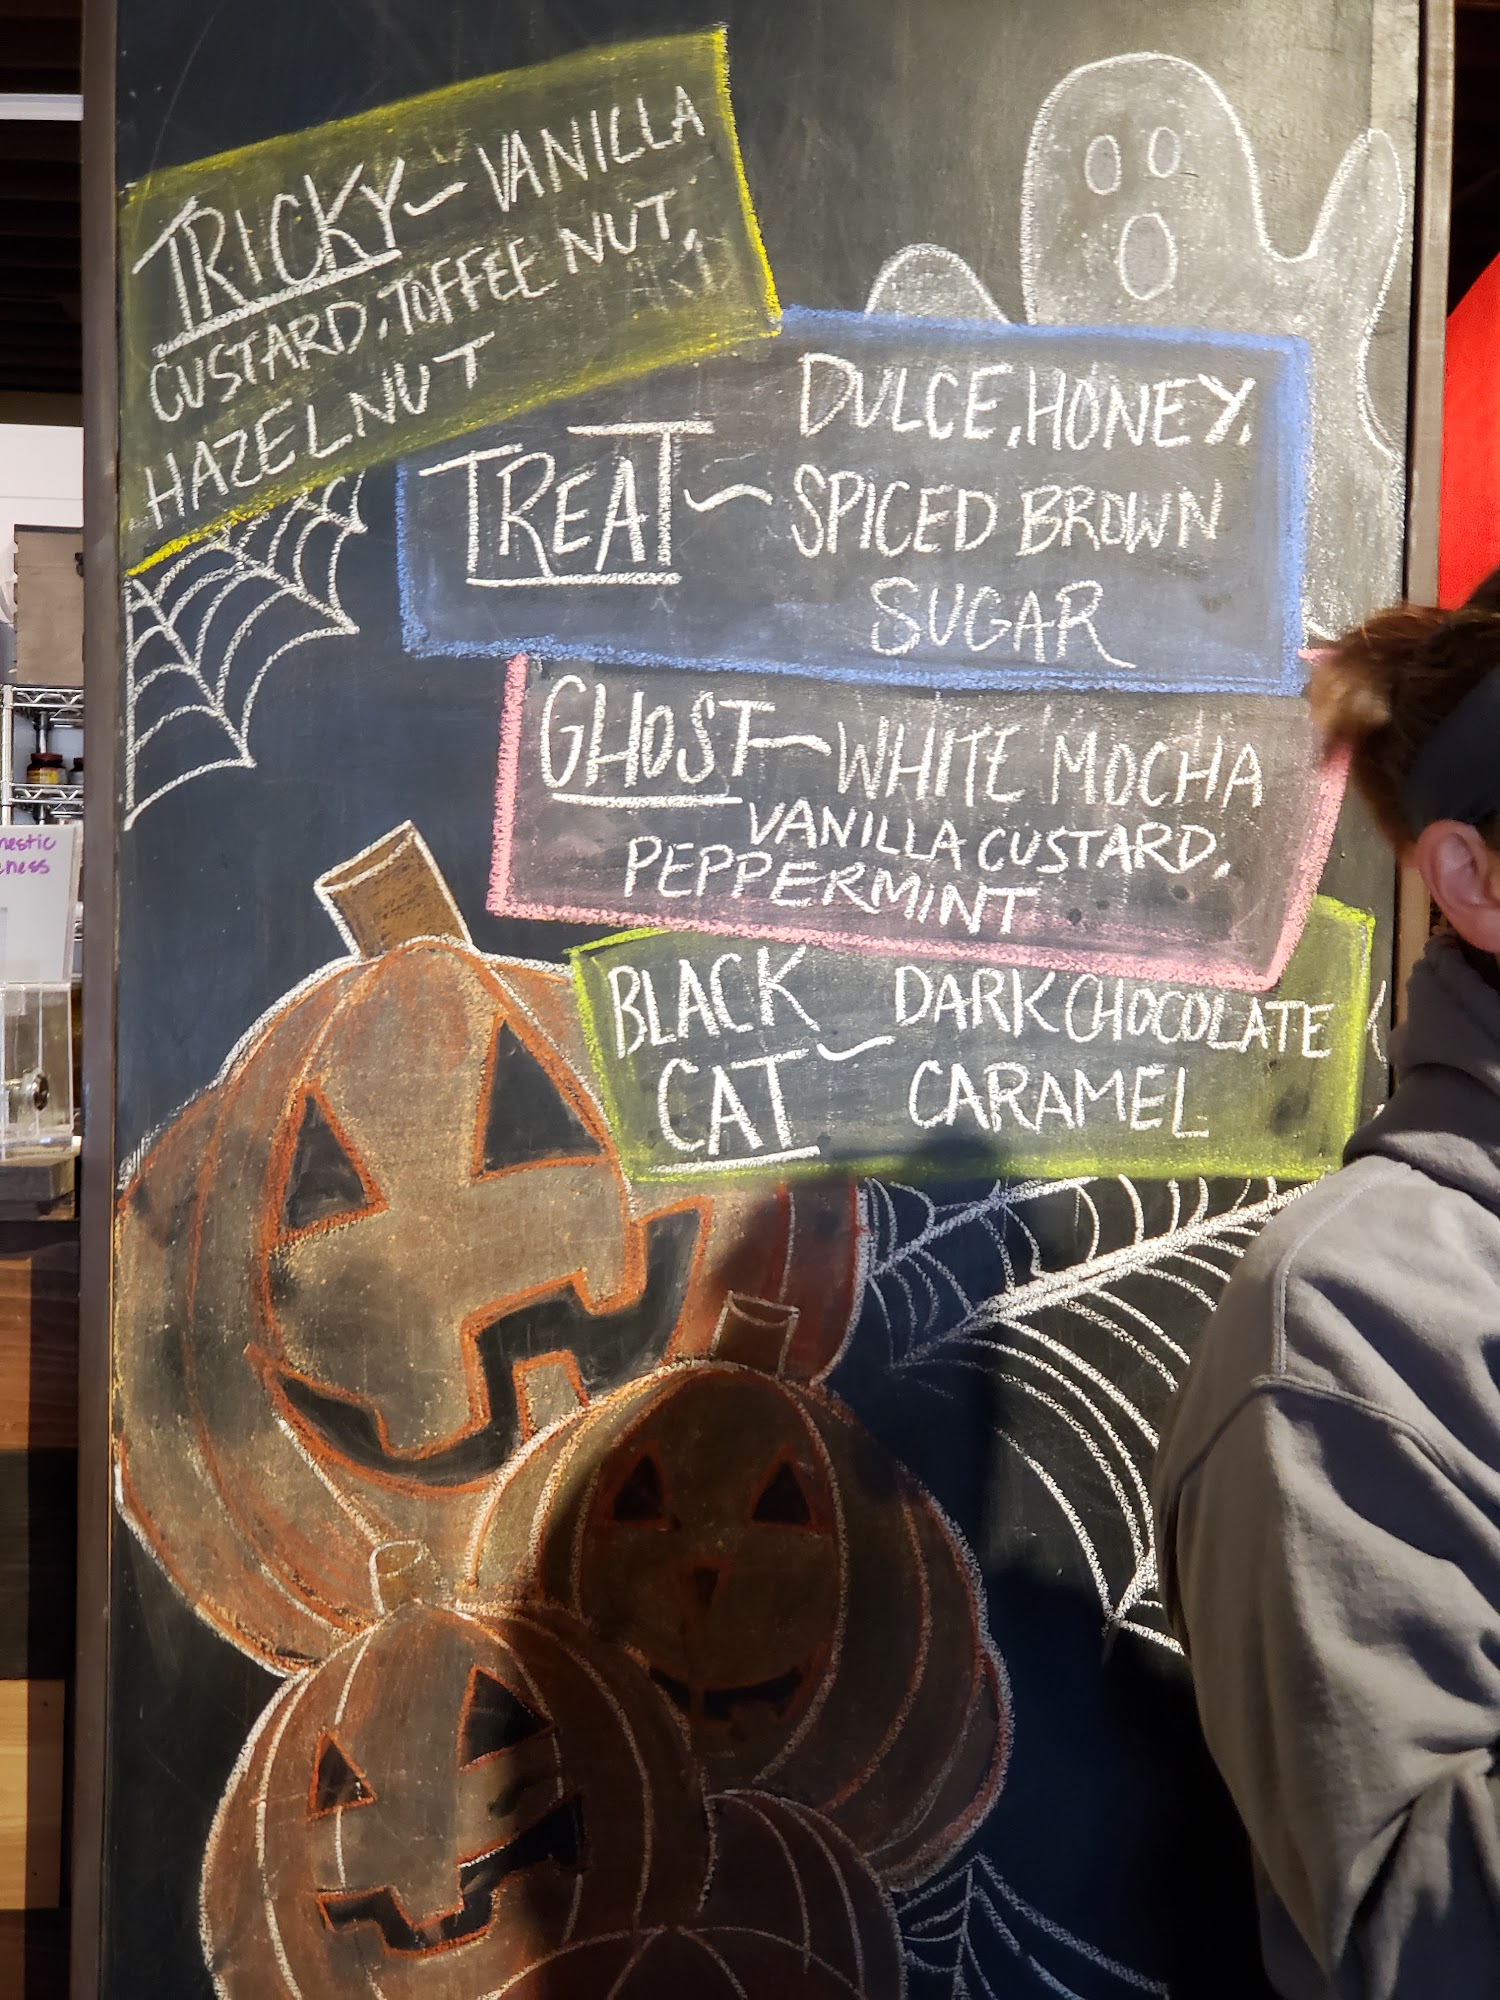 TRICKY~VANILLA
CUSTARD, TOFFEE NUT,
HAZELNUT
TREAT~DULCE, HONEY,
SPICED BROWN
SUGAR
GHOST~WHITE MOCHA
VANILLA CUSTARD,
PEPPERMINT
BLACK ~ DARK CHOCOLATE
CAT CARAMEL
mestic
eness